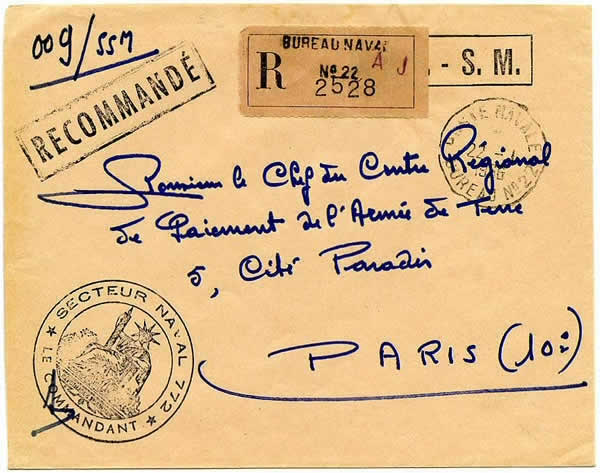 009/SSM
RECOMMANDÉ
BUREAU NAVAL
R
A J
Nº 22
2528
. - S. M.
POSTE NAVALE
22
BUREAU Nº 22
Monsieur le Chef du Centre Régional
de Paiement de l'Armée de Terre
5, Cité Paradis
PARIS (10e)
★ SECTEUR NAVAL 772 ★
LE COMMANDANT